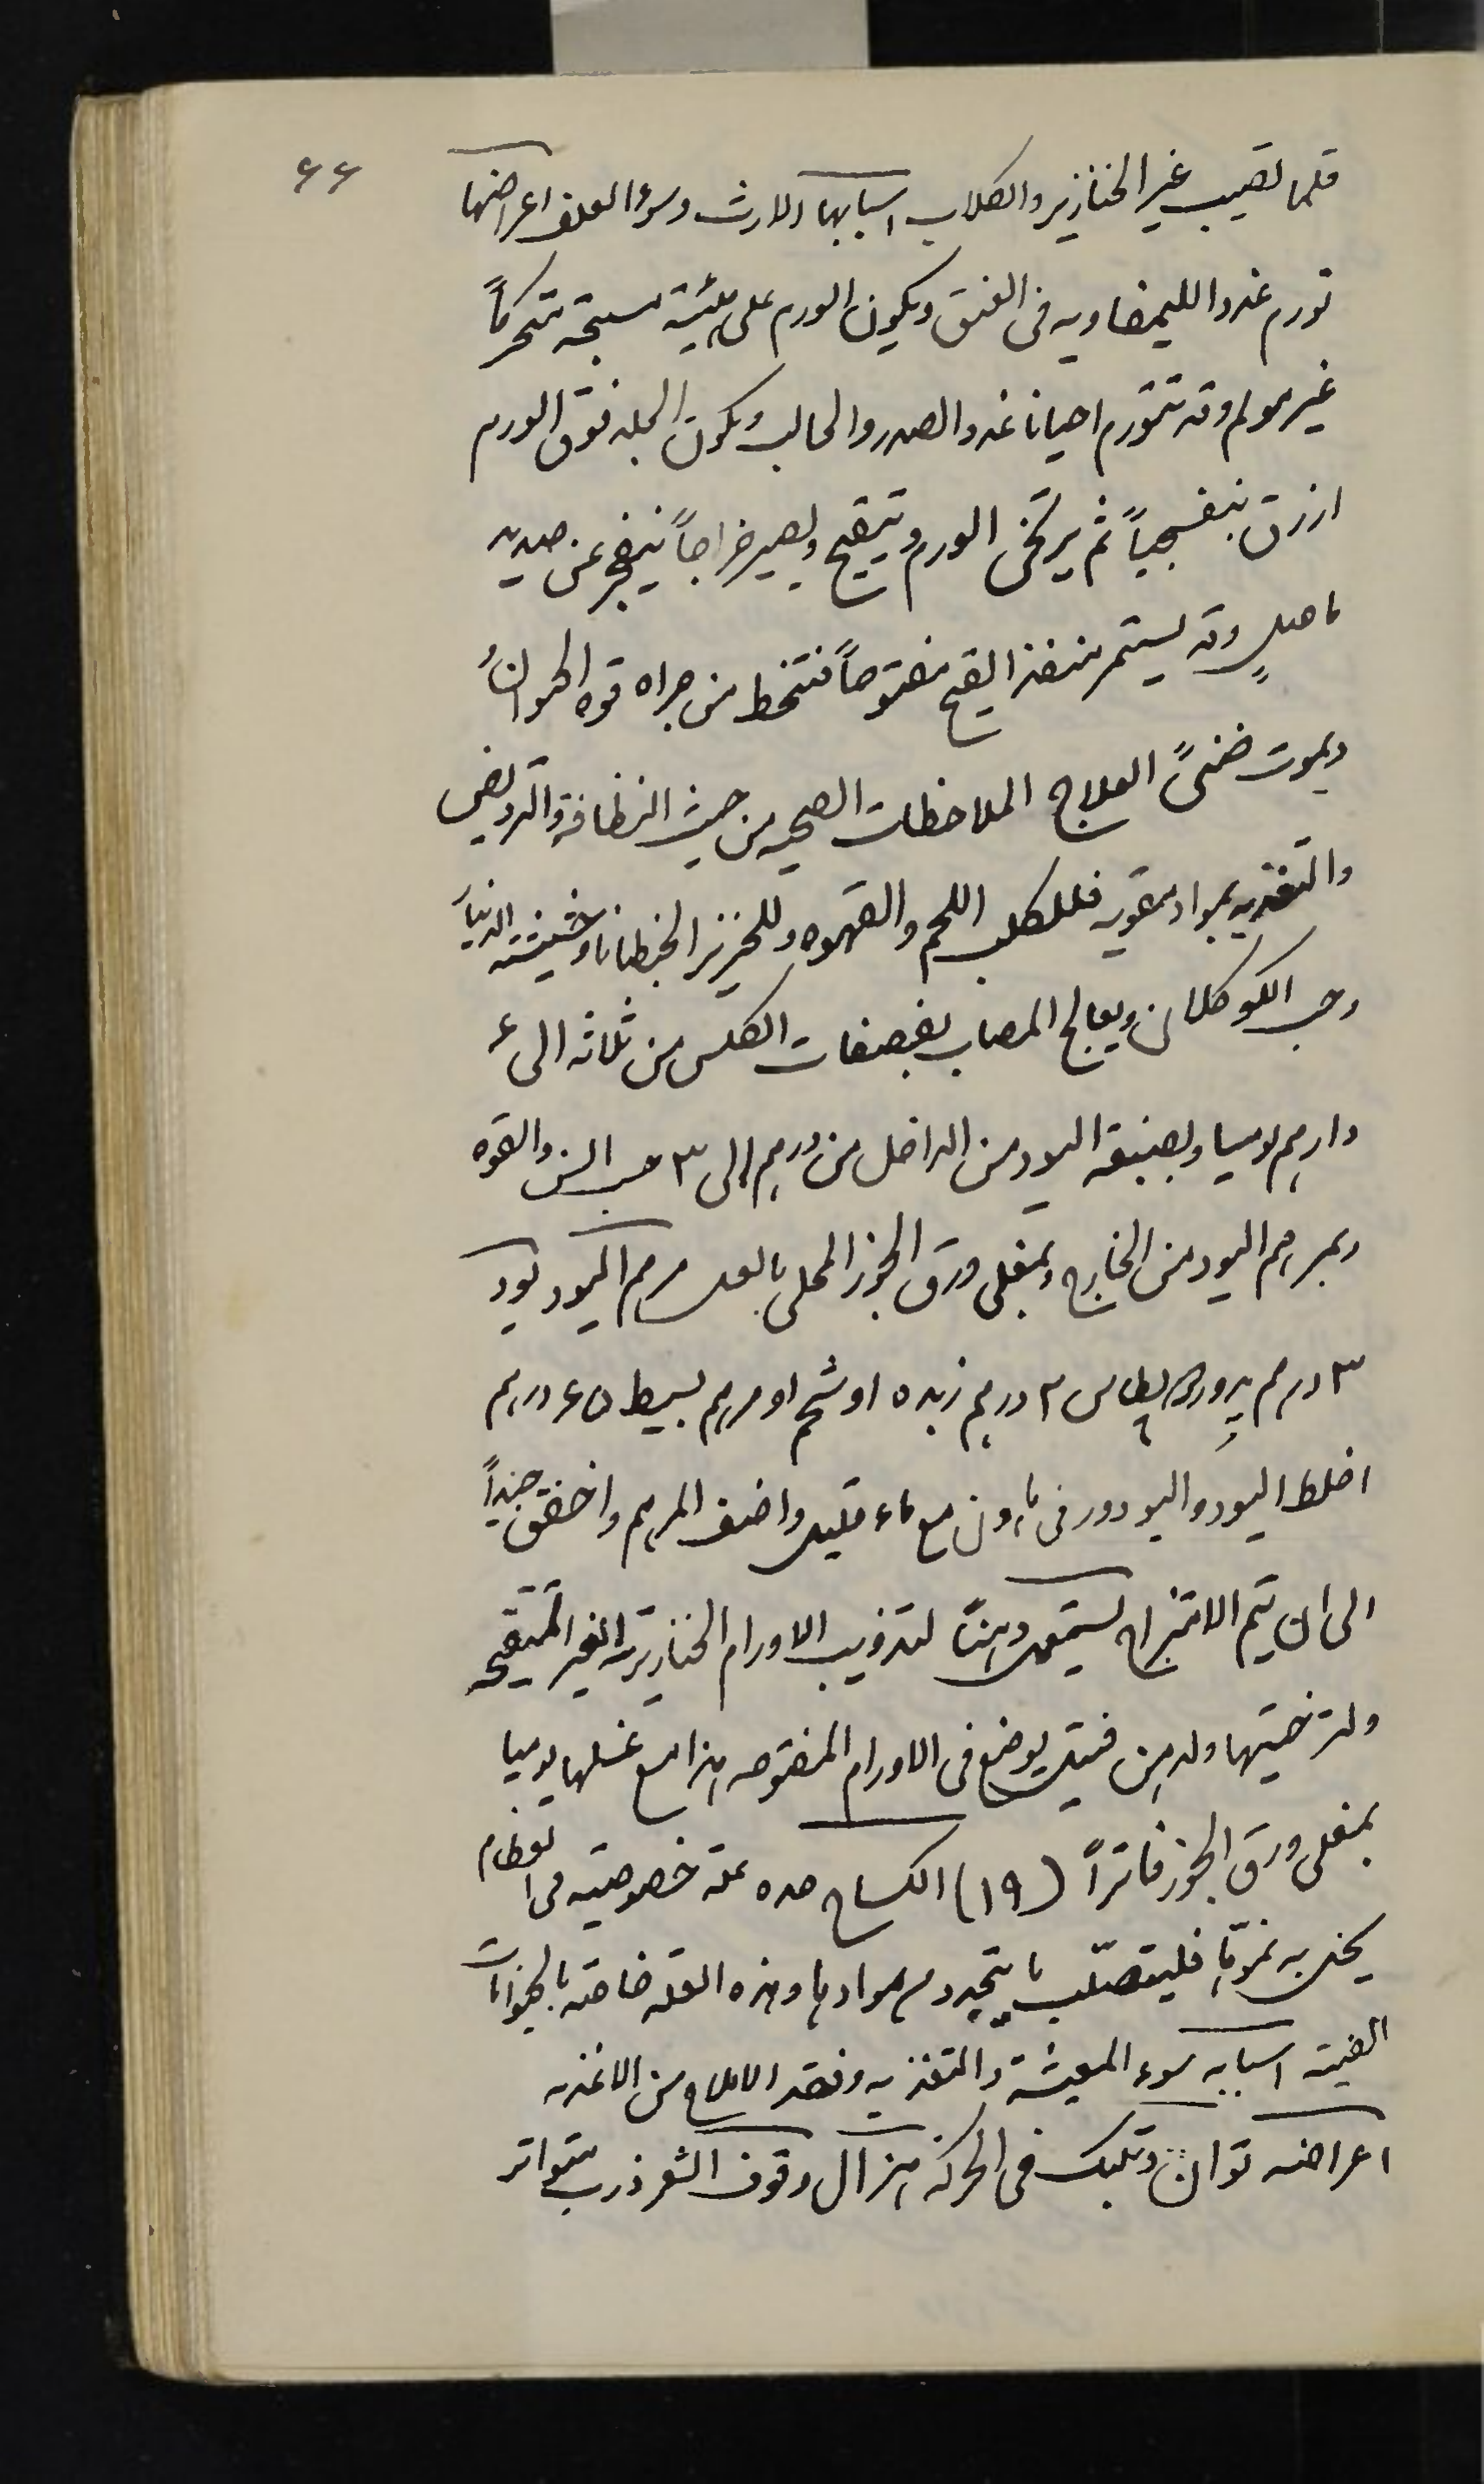 ٤٤
قلما تصيب غير الخنازير والكلاب اسبابها الارث وسوء العلف اعراضها
تورم غدد الليمفاويه فى العنق ويكون الورم على هيئة مسبحة متحركاً
غير مولم وقد تتورم احيانا غدد الصدر والحالب ويكون الجلد فوق الورم
ازرق بنفسجياً ثم يرتخى الورم ويتقيح ويصير خراجاً ينفجر عن صديد
ماصلٍ وقد يستمر منفذ القيح مفتوحاً فتنحط من جراه قوه الحيوان
ويموت ضنىً العلاج الملاحظات الصحيه من حيث النظافة والترويض
والتغذيه بمواد مقويه فللكلب اللحم والقهوه وللخنزير الجنطيانا وحشيشة الدينار
وحب الكوكلان ويعالج المصاب بفصفات الكلس من ثلاثه الى ٤
دارهم يوميا وبصبغة اليود من الداخل من درهم الى ٣ حسب السن والقوه
وبمرهم اليود من الخارج وبمغلى ورق الجوز المحلى بالعسل مرهم اليود يود
٣ درهم يدور البطاس ٣ درهم زبده او شحم او مرهم بسيط ٤٥ درهم
اخلط اليود واليودور فى هاون مع ماء قليل واضف المرهم واخفق جيداً
الى ان يتم الامتزاج يستعمل دهنًا لتذويب الاورام الخنازيرية الغير المتقيحه
ولترخيتها ولدهن فتيل يوضع فى الاورام المفتوحه هذا مع غسلها يوميا
بمغلى ورق الجوز فاتراً (١٩) الكساح حده علة خصوصيه فى العظام
يختل به نموّها فليتصلّب ما يتجدد من موادها وهذه العله خاصة بالحيوانات
الفتية اسبابه سوء المعيشة والتغذيه وفقد الاملاح من الاغذيه
اعراضه توان وتلبك فى الحركة هزال وقوف الشعر ذرب متواتر